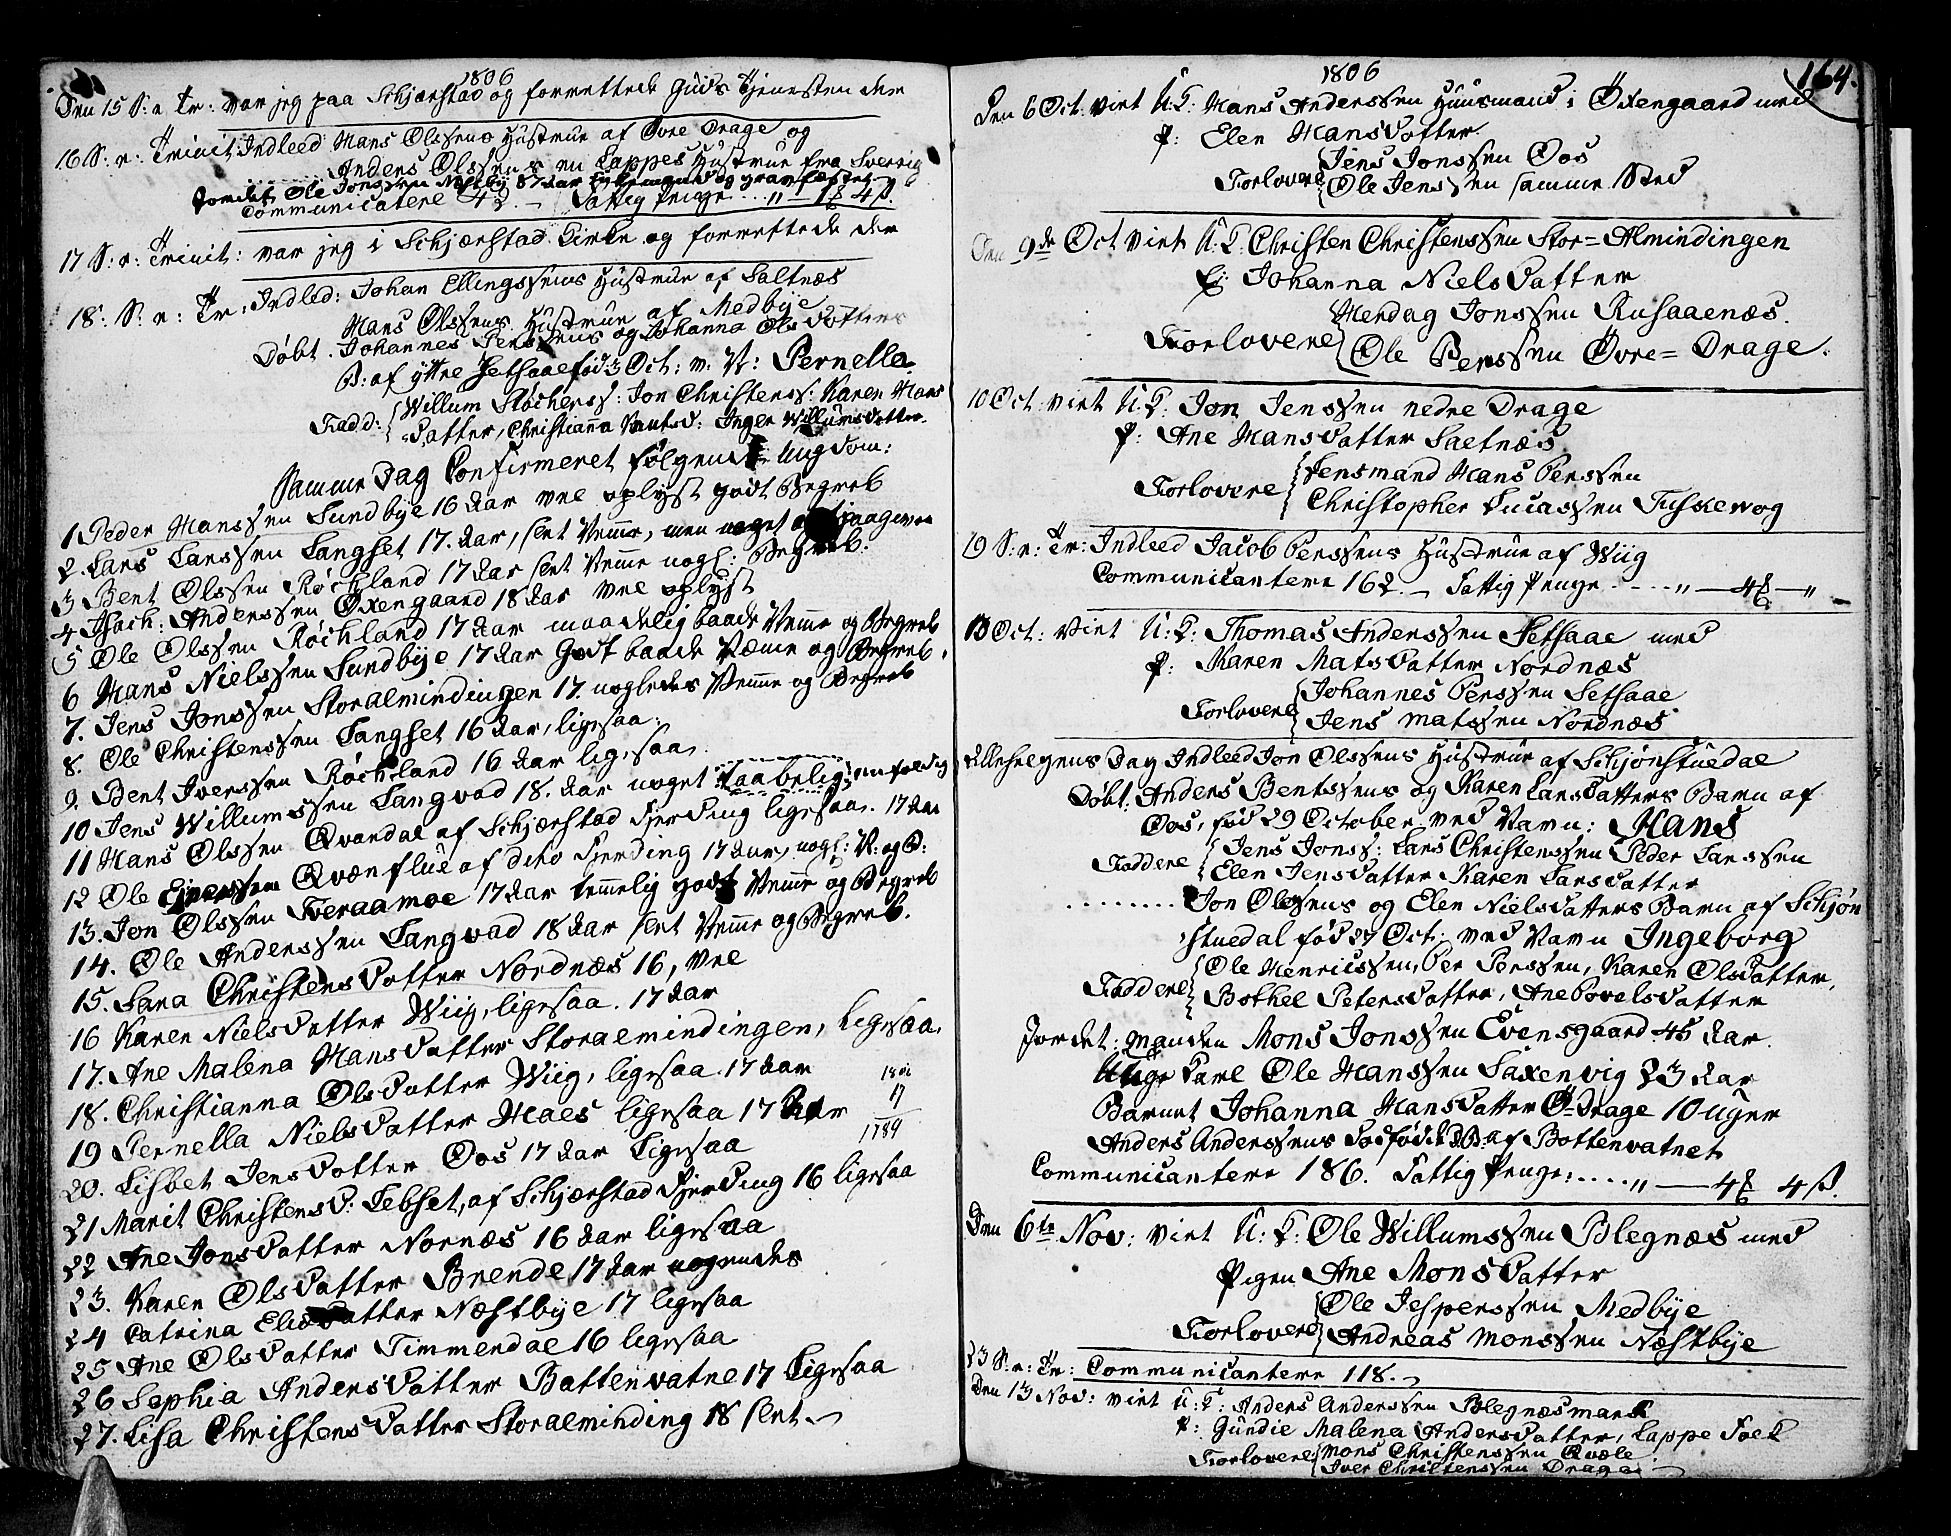 1806
Den 15 S: a Tr: var jeg paa Schjærstad og forrettede Guds Tjenesten der
16 S: a: Trinit: Indleed Hans Olssens Hustrue af Øvre Drage og
Anders Olssens en Lappes Hustrue fra Sverrig
Jordet Ole Jonssen Næstby 87 Aar
Communicatere 42. Fattig Penge
17 S: a: Trinit: var jeg i Schjærstad Kirke og forrettede der
18. S: a: Tr: Indled: Johan Ellingssens Hustrue af Saltnæs
Hans Olssens Hustrue af Medbye
Døbt. Johannes Perssens og Johanna Olsdatters
B: af yttre Setsaae fød 3 Oct: m. N: Pernella.
Fadd: Willum Støchers: Jon Christens: Karen Hans
Datter, Christianna Knutsd: Inger Willumsdatter
Samme Dag Confirmeret følgende Ungdom:
1 Peder Hanssen Sundbye 16 Aar vel oplyst godt Begreb
2. Lars Larssen Langset 17. Aar, slet Nemme, men noget
3 Bent Olssen Røchland 17 Aar slet Nemme nogl: Begreb.
4 Isach: Anderssen Øxengaard 18 Aar vel oplyst
5 Ole Olssen Røchland 17 Aar maadelig baade Nemme og Begreb
6 Hans Nielssen Sundbye 17 Aar Godt baade Næme og Begreb.
7. Jens Jonssen Storalmindingen 17. nogledes Nemme og Begreb
8. Ole Christenssen Langset 16 Aar, ligesaa.
9. Bent Iverssen Røchland 16 Aar ligesaa.
10 Jens Willumssen Langvad 18. Aar noget taabelig, enfoldig
11 Hans Olssen Qvandal af Schjærstad Fjerding ligesaa. 17 Aar
12 Ole Ejnerssen Qvænflue af dito Fjerding 17 Aar, nogl: N: og B:
13. Jon Olssen Tveraamoe 17 Aar temmelig godt Nemme og Begreb
14. Ole Anderssen Langvad 18 Aar slet Nemme og Begreb.
15. Sara Christens Datter Nordnæs 16, vel
16 Karen Niels Datter Wiig, ligesaa. 17 Aar
17. Ane Malena Hans Datter Storaalmindingen, Ligesaa.
18. Christianna Ols Datter Wiig, ligesaa. 17 Aar
19 Pernella Niels Datter Haes ligesaa 17 Aar
1806
17
1789
20. Lisbet Jens Datter Oos 17 Aar Ligesaa
21 Marit Christens D: Lebset, af Schjærstad Fjerding 16 ligesaa
22 Ane Jons Datter Nornæs 16 Aar ligesaa
23. Karen Ols Datter Brende 17 Aar nogendes
24 Catrina Elias Datter Næstbye 17 ligesaa
25 Ane Ols Datter Timmerdal 16 ligesaa
26 Sephia Anders Datter Battenvatne 17 Ligesaa
27. Lisa Christens Datter Storalminding 18 slet
1806
164.
Den 6 Oct. viet U: K: Hans Anderssen Huusmand i Øxengaard med
P: Elen Hans Datter.
Forlovere Jens Jonssen Oos
Ole Jenssen samme Sted
Den 9de Oct viet U. K. Christen Christenssen Stor=Almindingen
P: Johanna Niels Datter
Forlovere Herdag Jonssen Rusaaenæs.
Ole Perssen Øvre=Drage.
10 Oct. viet U: K: Jon Jenssen nedre Drage
P: Ane Hans Datter Saltnæs
Forlovere Lensmand Hans Perssen
Christopher Lucassen Fiskevog
19 S: a: Tr: Indleed Jacob Perssens Hustrue af Wiig
Communicantere 162. Fattig Penge
13 Oct: viet U: K: Thomas Anderssen Setsaae med
P: Karen Mats Datter Nordnæs
Forlovere Johannes Perssen Setsaae
Jens Matssen Nordnæs
Allehelgens Dag Indleed Jon Olssens Hustrue af Schjønstuedal
Døbt: Anders Bentssens og Karen Lars Datters Barn af
Oos, fød 29 October ved Navn: Hans
Faddere Jens Jonss: Lars Christenssen Peder Larssen
Elen Jens Datter Karen Lars Datter
Jon Olssens og Elen Niels Datters Barn af Schjøn
stuedal fød 27 Oct: ved Navn Ingeborg
Faddere Ole Henricssen, Per Perssen, Karen Ols Datter,
Bothel Peters Datter, Ane Povels Datter
Jordet: Manden Mons Jonssen Evensgaard 45 Aar.
Unge Karl Ole Hanssen Saxenvig 23 Aar
Barnet Johanna Hans Datter Ø=Drage 10 Uger
Anders Anderssens dødfødt B: af Bottenvatnet
Communicantere 186. Fattig Penge: 4 4 s.
Den 6te Nov: viet U: K: Ole Willumssen Blegnæs med
Pigen Ane Mons Datter
Forlovere Ole Jesperssen Medbye
Andreas Monssen Næstbye
23 S: a: Tr: Communicantere 118.
Den 13 Nov: viet U: K: Anders Anderssen Blegnæsmark
P: Gundie Malena Anders Datter, Lappe Folk
Forlovere Mons Christenssen Qvæle
Iver Christenssen Drage